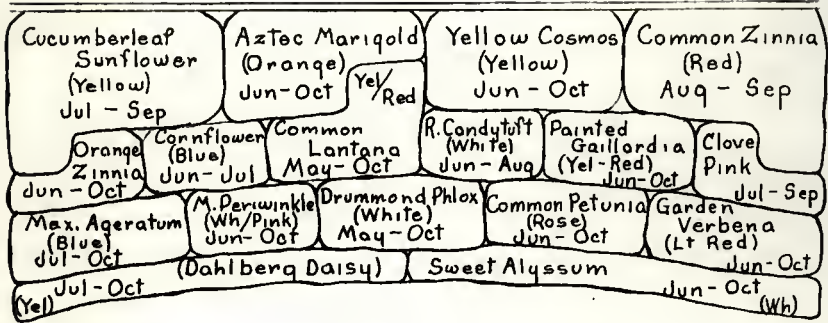 Cucumberleaf
Sunflower
(Yellow)
Jul - Sep
Aztec Marigold
(Orange)
Jun-Oct
Yel/
Red
Yellow Cosmos
(Yellow)
Jun - Oct
Common Zinnia
(Red)
Aug - Sep
Orange
Zinnia
Jun - Oct
Cornflower
(Blue)
Jun - Jul
Common
Lantana
May - Oct
R. Candytuft
(White)
Jun - Aug
Painted
Gaillardia
(Yel-Red)
Jun-Oct
Clove
Pink
Jul - Sep
Mex. Ageratum
(Blue)
Jul-Oct
M. Periwinkle
(Wh/Pink)
Jun - Oct
Drummond Phlox
(White)
May-Oct
Common Petunia
(Rose)
Jun - Oct
Garden
Verbena
(Lt Red)
Jun - Oct
(Dahlberg Daisy)
Jul-Oct
(Yel)
Sweet Alyssum
Jun - Oct
(Wh)